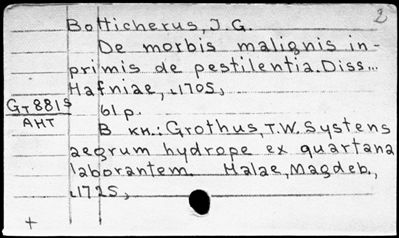 2
Botticherus, J. G.
De morbis malignis in-
primis de pestilentia. Diss...
Hafniae, 1705,
Gт 881s
АНТ
61 p.
В кн.: Grothus, T.W. Systens
aegrum hydrope ex quartana
laborantem. Halae, Magdeb.,
1725,
+